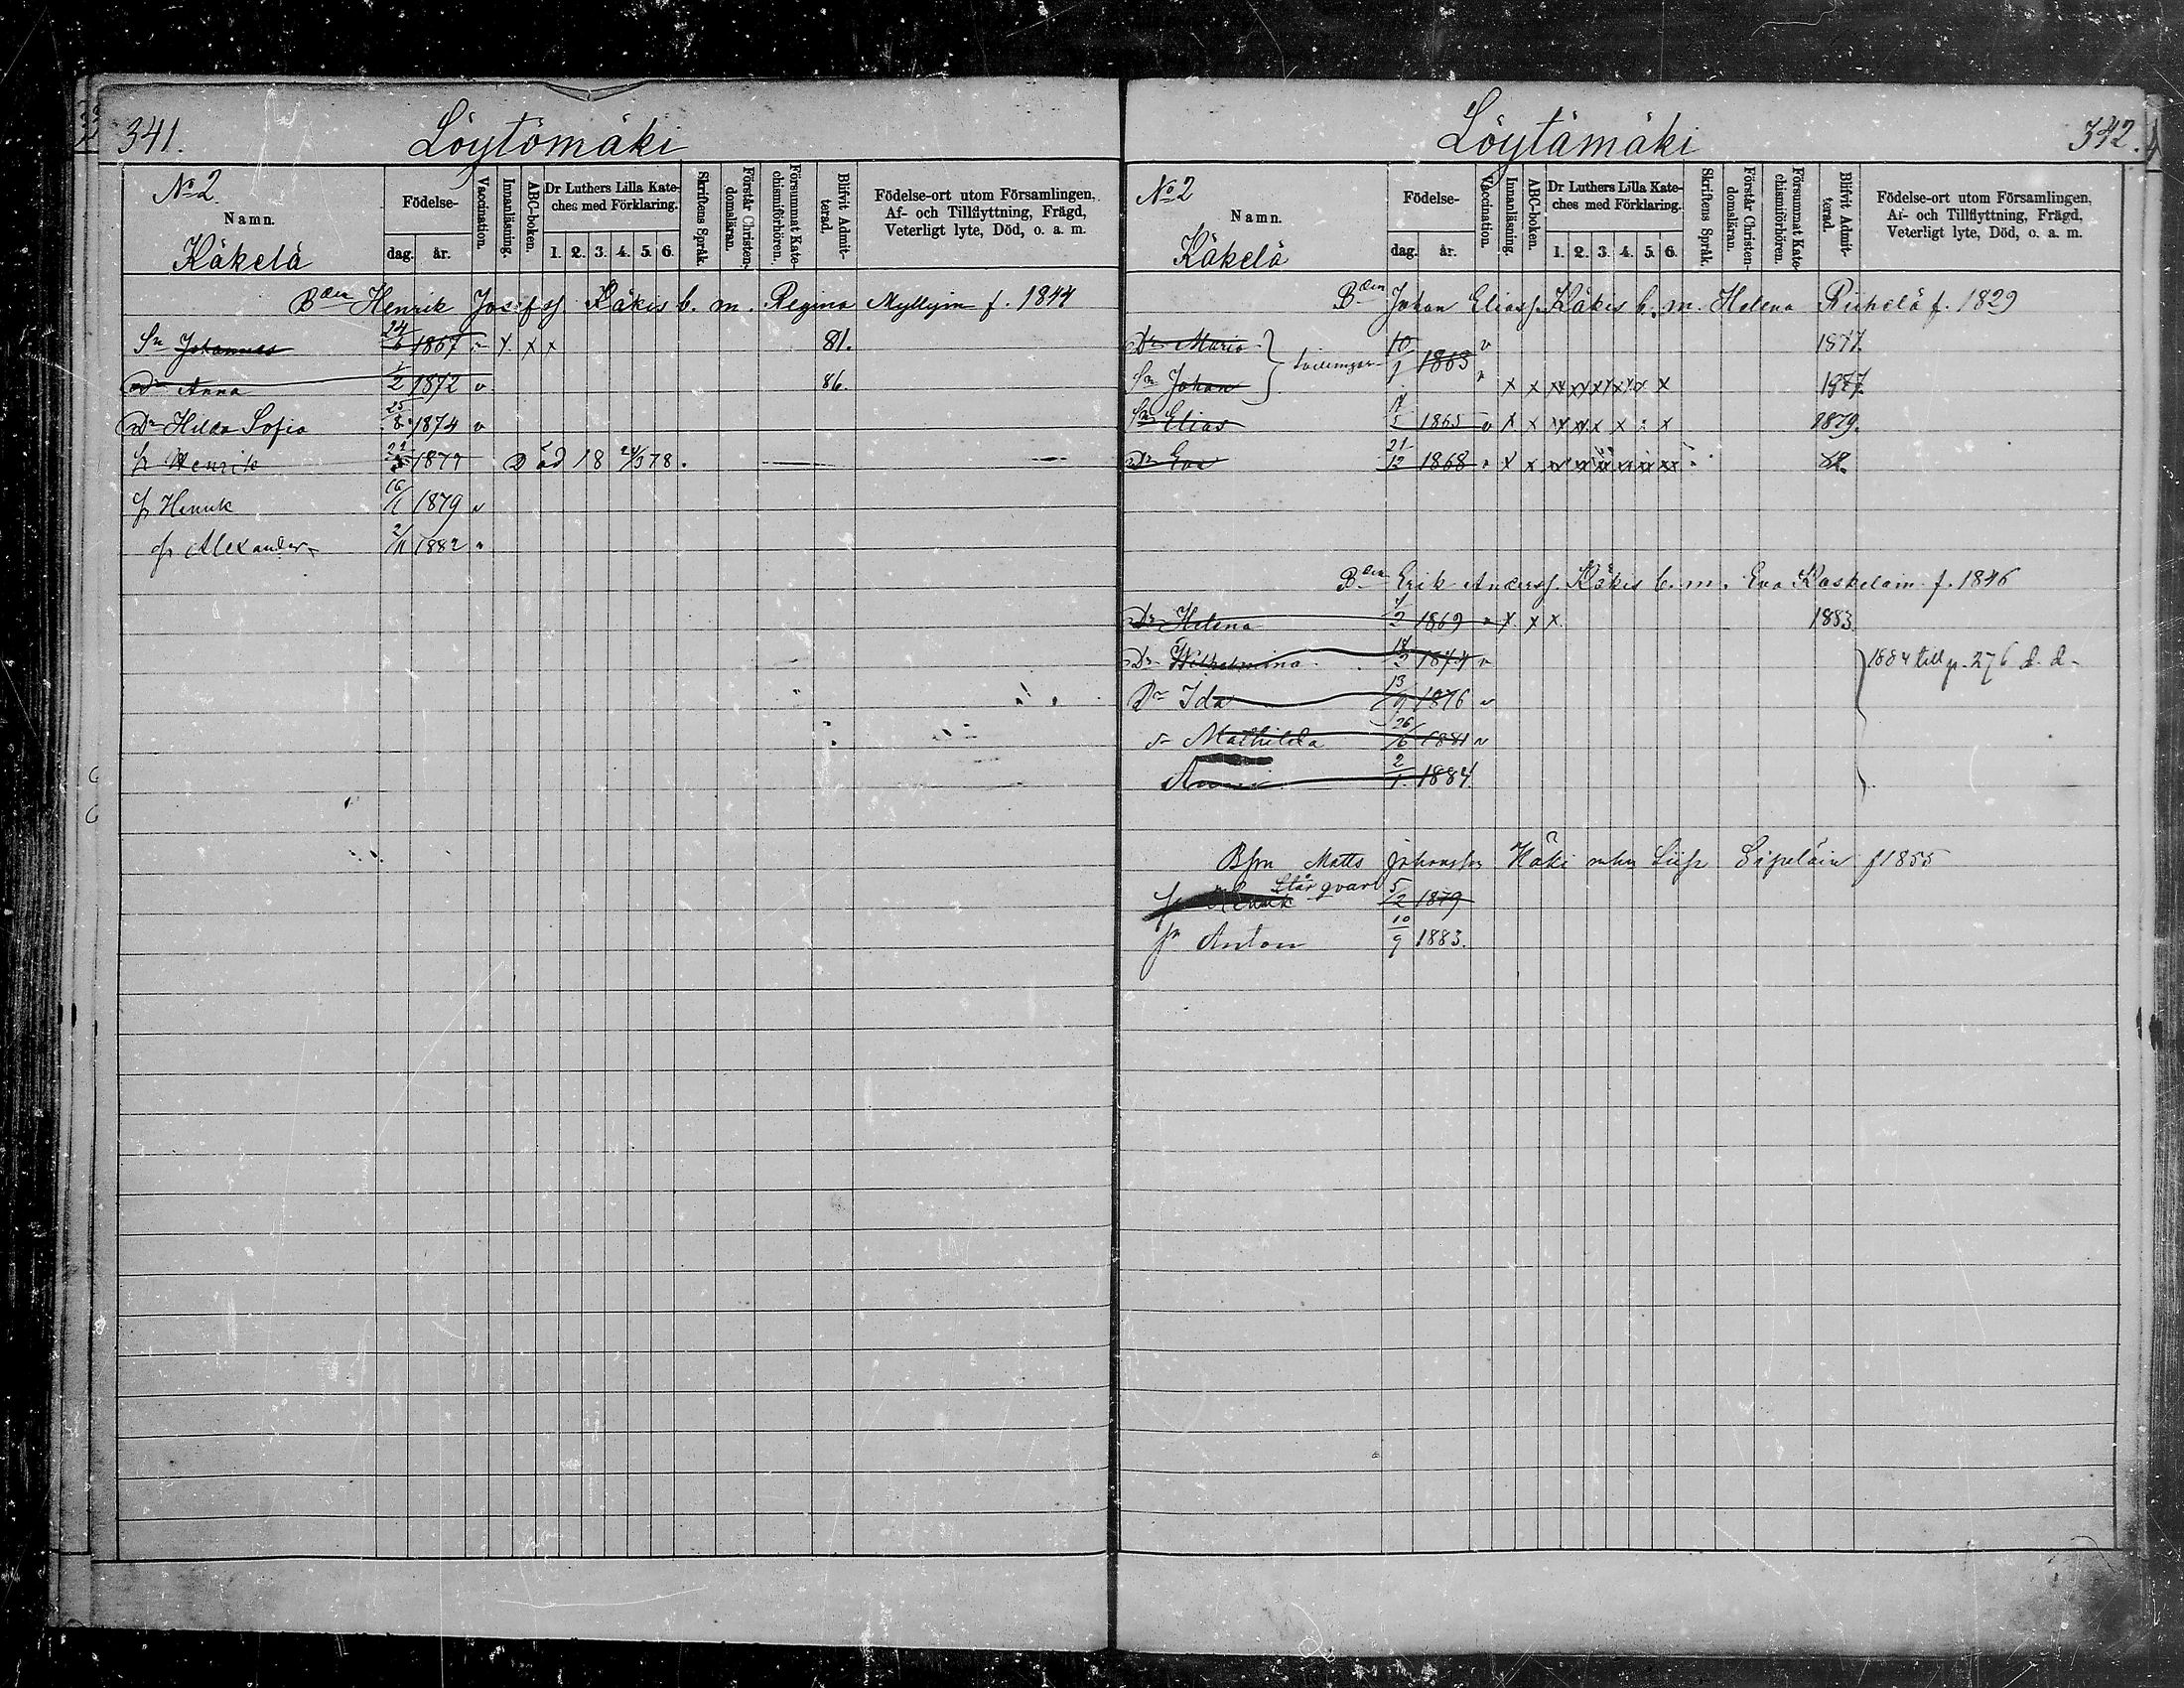 341.
Löytömäki
No 2.
Namn.
Käkelä
Födelse-
dag.
år.
Vaccination.
Innanläsning.
ABC-boken.
Dr Luthers Lilla Kate-
ches med Förklaring.
1. 2. 3. 4. 5. 6.
Skriftens Språk.
Förstår Christen-
domsläran.
Försummat Kate-
chismiförhören.
Blifvit Admit-
terad.
Födelse-ort utom Församlingen,
Af- och Tillflyttning, Frägd,
Veterligt lyte, Död, o. a. m.
Bden Henrik Josefss. Käkis b. m. Regina Myllyin f. 1844
Sn Johannes 24/6 1867 x x x 81.
Dr Anna 1/2 1872 v 86.
Dr Hilda Sofia 25/8 1874 v
Sn Henrik 1877 Död 18 24/3 78.
Sn Henrik 1879 v
Sn Alexander 2/11 1882
342.
Löytämäki
No 2
Namn.
Käkelä
Födelse-
dag.
år.
Vaccination.
Innanläsning.
ABC-boken.
Dr Luthers Lilla Kate-
ches med Förklaring.
1. 2. 3. 4. 5. 6.
Skriftens Språk.
Förstår Christen-
domsläran.
Försummat Kate-
chismiförhören.
Blifvit Admit-
terad.
Födelse-ort utom Församlingen,
Af- och Tillflyttning, Frägd,
Veterligt lyte, Död, o. a. m.
Bden Johan Eliass. Käkis b. m. Helena f. 1829
Dr Maria 10/1 1863 v 1877.
Sn Johan x x 1877.
Sn Elias 1865 v x x 1879.
Dr Eva 21/12 1868 x x 82.
Bden Erik Anderss. Käkis b. m. Eva Koskeloin f. 1846
Dr Helena 1869 x x x 1883.
Dr Wilhelmina 1874 v 1884 till p. 276 d. d.
Dr Ida 13/9 1876 v
Mathilda 26/6 1881 v
2/1 1884.
Bsn Matts Johansson Käki mhu Sipeläin f 1855
Sn Henrik Står qvar 5/2 1879
Sn Anton 10/9 1883.